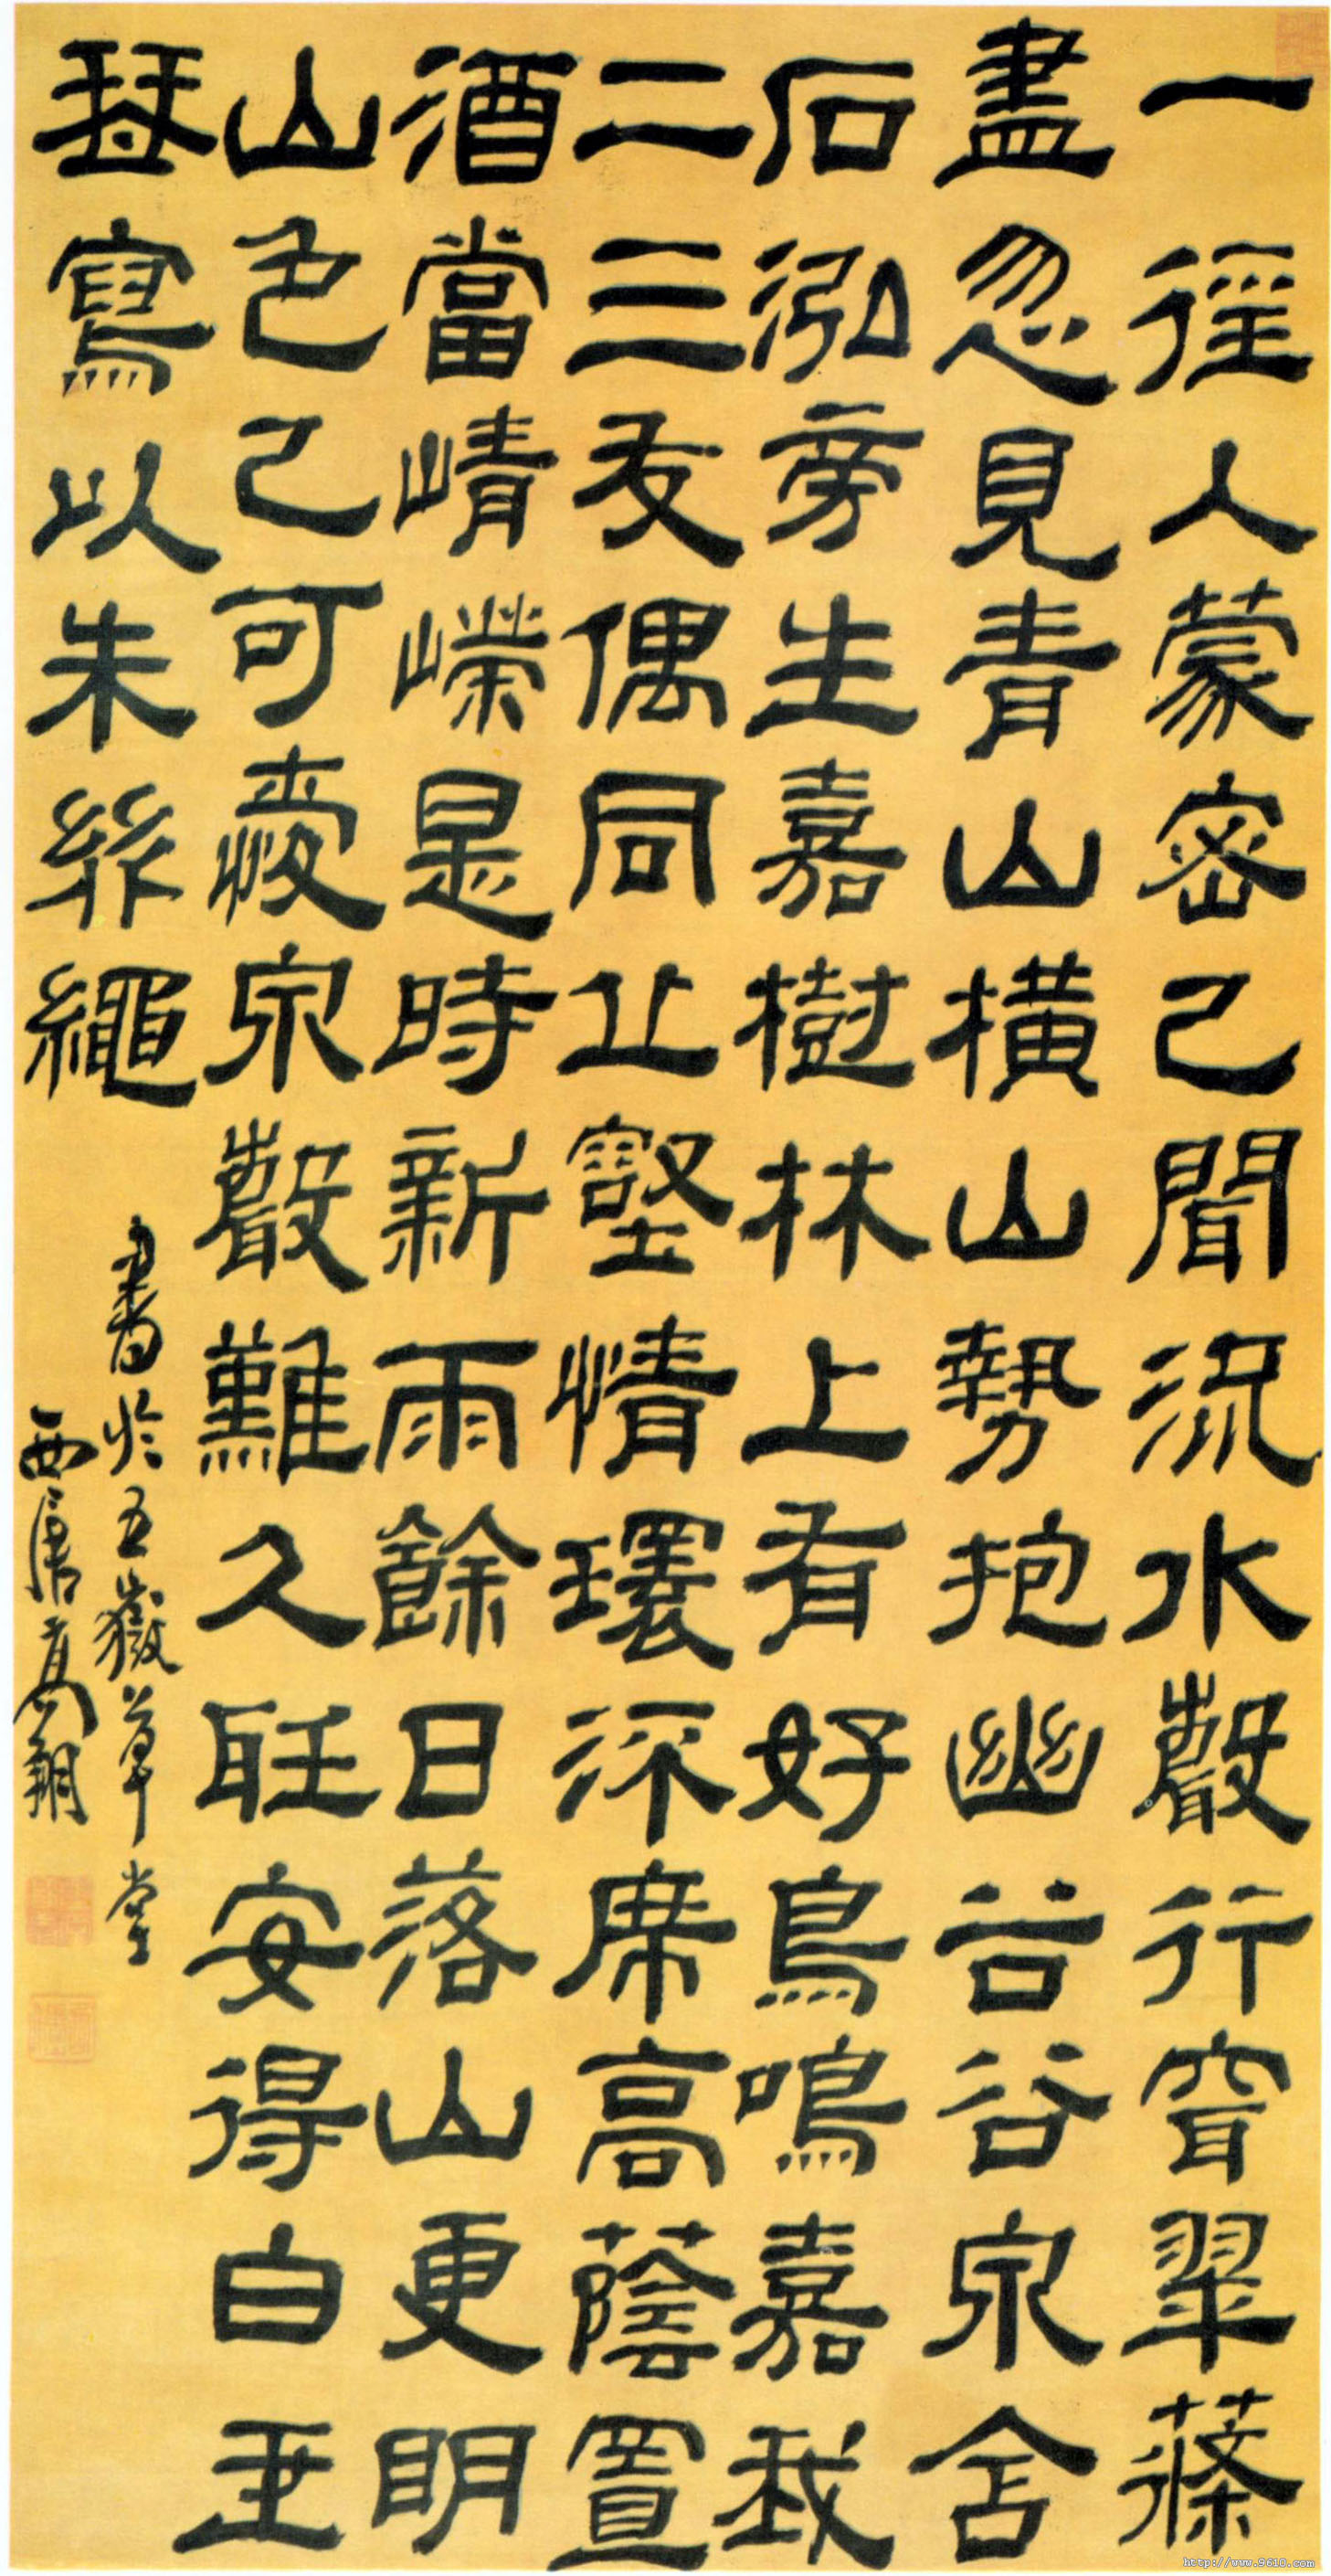 一徑入蒙密已聞流水聲行窅翠蓧
盡忽見青山橫山勢抱幽谷谷泉含
石泓旁生嘉樹林上有好鳥鳴嘉我
二三友偶同丘壑情環深席高蔭置
酒當崝嶸是時新雨餘日落山更明
山色已可愛泉聲難久聽安得白玉
琴寫以朱絲繩
書於五嶽草堂
西唐高翔
http://www.9610.com